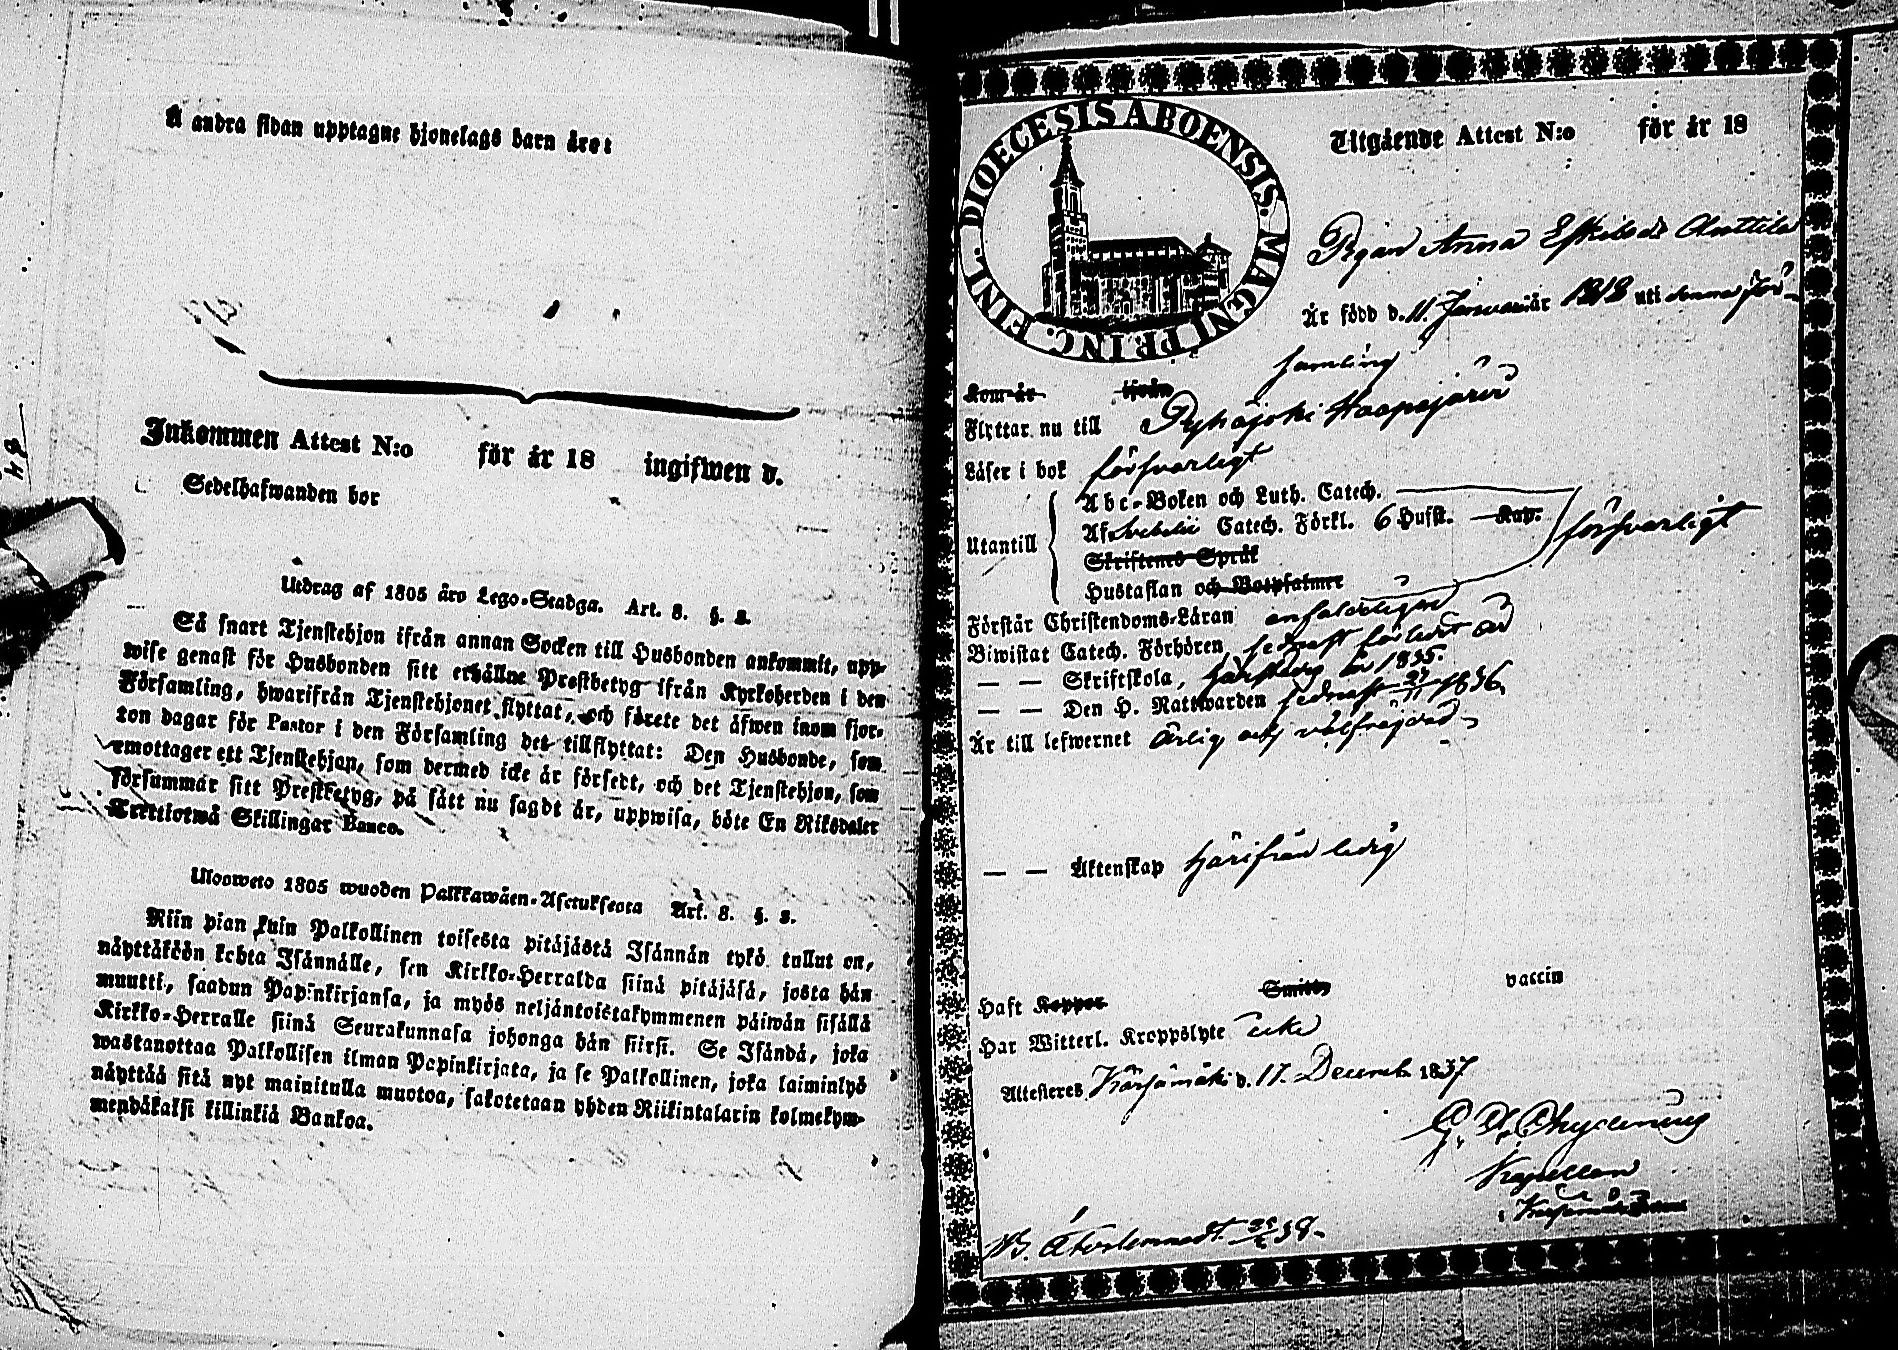 Å andra sidan upptagne hjonelags barn äro:
Inkommen Attest N:o för år 18 ingifwen d.
Sedelhafwanden bor
Utdrag af 1805 års Lego-Stadga. Art. 8. §. 2.
Så snart Tjenstehjon ifrån annan Socken till Husbonden ankommit, upp-
wise genast för Husbonden sitt erhållne Prestbetyg ifrån Kyrkoherden i den
Församling, hwarifrån Tjenstehjonet flyttat, och förete det äfwen inom fjor-
ton dagar för Pastor i den Församling det tillflyttat: Den Husbonde, som
emottager ett Tjenstehjon, som dermed icke är försedt, och det Tjenstehjon, som
försummar sitt Prestbetyg, på sätt nu sagdt är, uppwisa, böte En Riksdaler
Trettiotwå Skillingar Banco.
Ulosweto 1805 wuoden Palkkawäen-Asetuksesta Art. 8. §. 2.
Niin pian kuin Palkollinen toisesta pitäjästä Isännän tykö tullut on,
näyttäköön kohta Isännälle, sen Kirkko-Herralda siinä pitäjäsä, josta hän
muutti, saadun Papinkirjansa, ja myös neljäntoistakymmenen päiwän sisällä
Kirkko-Herralle siinä Seurakunnasa johonga hän siirsi. Se Isändä, joka
wastanottaa Palkollisen ilman Papinkirjata, ja se Palkollinen, joka laiminlyö
näyttää sitä nyt mainitulla muotoa, sakotetaan yhden Riikintalarin kolmekym-
mendäkaksi killinkiä Bankoa.
DIOECESIS ABOENSIS. MAGNI PRINC. FINL.
Utgående Attest N:o för år 18
Pigan Anna Eskilsdr Anttila
Är född d. 11 Januari år 1818 uti denna För-
samling
Kom år ifrån
Flyttar nu till Pyhäjoki Haapajärvi
Läser i bok försvarligt
Abc-Boken och Luth. Catech.
Utantill Af Svebelii Catech. Förkl. 6 Hufst. Kap. försvarligt
Skriftens Språk
Hustaflan och Botpsalmer
Förstår Christendoms-Läran enfaldeligen
Biwistat Catech. Förhören, sednast förledit år
— — Skriftskola, härstädes år 1835.
— — Den H. Nattwarden sednast 27/11 1836.
Är till lefwernet ärlig och välfrejdad
— — Äktenskap härifrån ledig
Haft Koppor Smitty vaccin
Har Witterl. Kroppslyte icke
Attesteres Kärsämäki d. 17. Decemb. 1837
Kapellan
i Kärsämäki